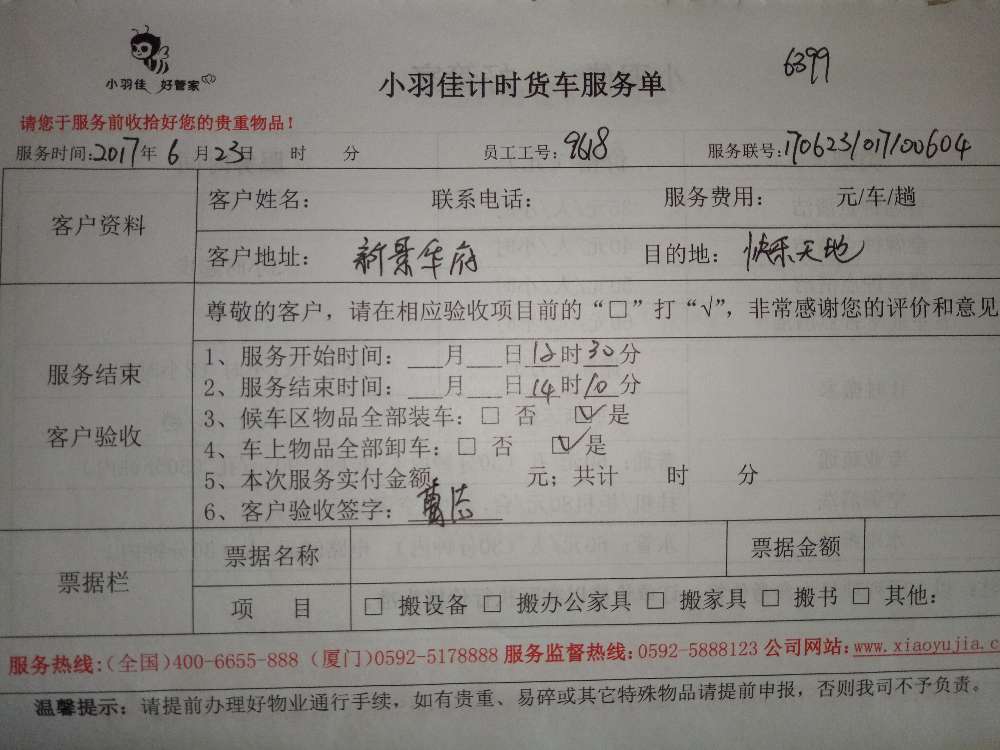 小羽佳 好管家
小羽佳计时货车服务单
6399
请您于服务前收拾好您的贵重物品！
服务时间:2017年 6 月 23日 时 分 员工工号: 9618 服务联号:170623/017/00604
客户资料
客户姓名： 联系电话： 服务费用： 元/车/趟
客户地址： 新景华府 目的地： 快乐天地
服务结束
客户验收
尊敬的客户，请在相应验收项目前的“□”打“√”，非常感谢您的评价和意见
1、服务开始时间：___月___日12时30分
2、服务结束时间：___月___日14时10分
3、候车区物品全部装车：□ 否 ☑ 是
4、车上物品全部卸车：□ 否 ☑ 是
5、本次服务实付金额 元；共计 时 分
6、客户验收签字：
票据栏
票据名称 票据金额
项 目 □ 搬设备 □ 搬办公家具 □ 搬家具 □ 搬书 □ 其他：
服务热线：（全国）400-6655-888 （厦门）0592-5178888 服务监督热线：0592-5888123 公司网站：www.xiaoyujia.c
温馨提示：请提前办理好物业通行手续，如有贵重、易碎或其它特殊物品请提前申报，否则我司不予负责。